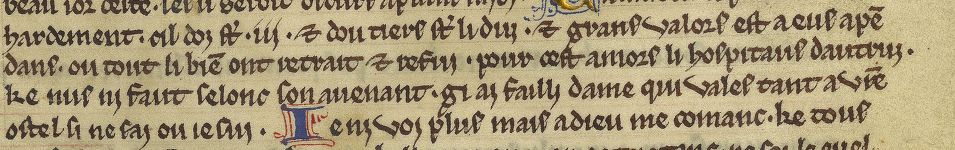 hardement · cil doi st̄ · iii · ⁊ dou tiers st̄ li dui · ⁊ grans valors est a eus apē
dans · ou tout li biē ont retrait ⁊ refui · pour cest amors li hospitaus dautrui ·
ke nus ni faut selonc son auenant · gi ai failli dame qui vales tant a vr̄e
ostel si ne sai ou ie sui · Ie ni voi plus mais a dieu me comanc · ke tous